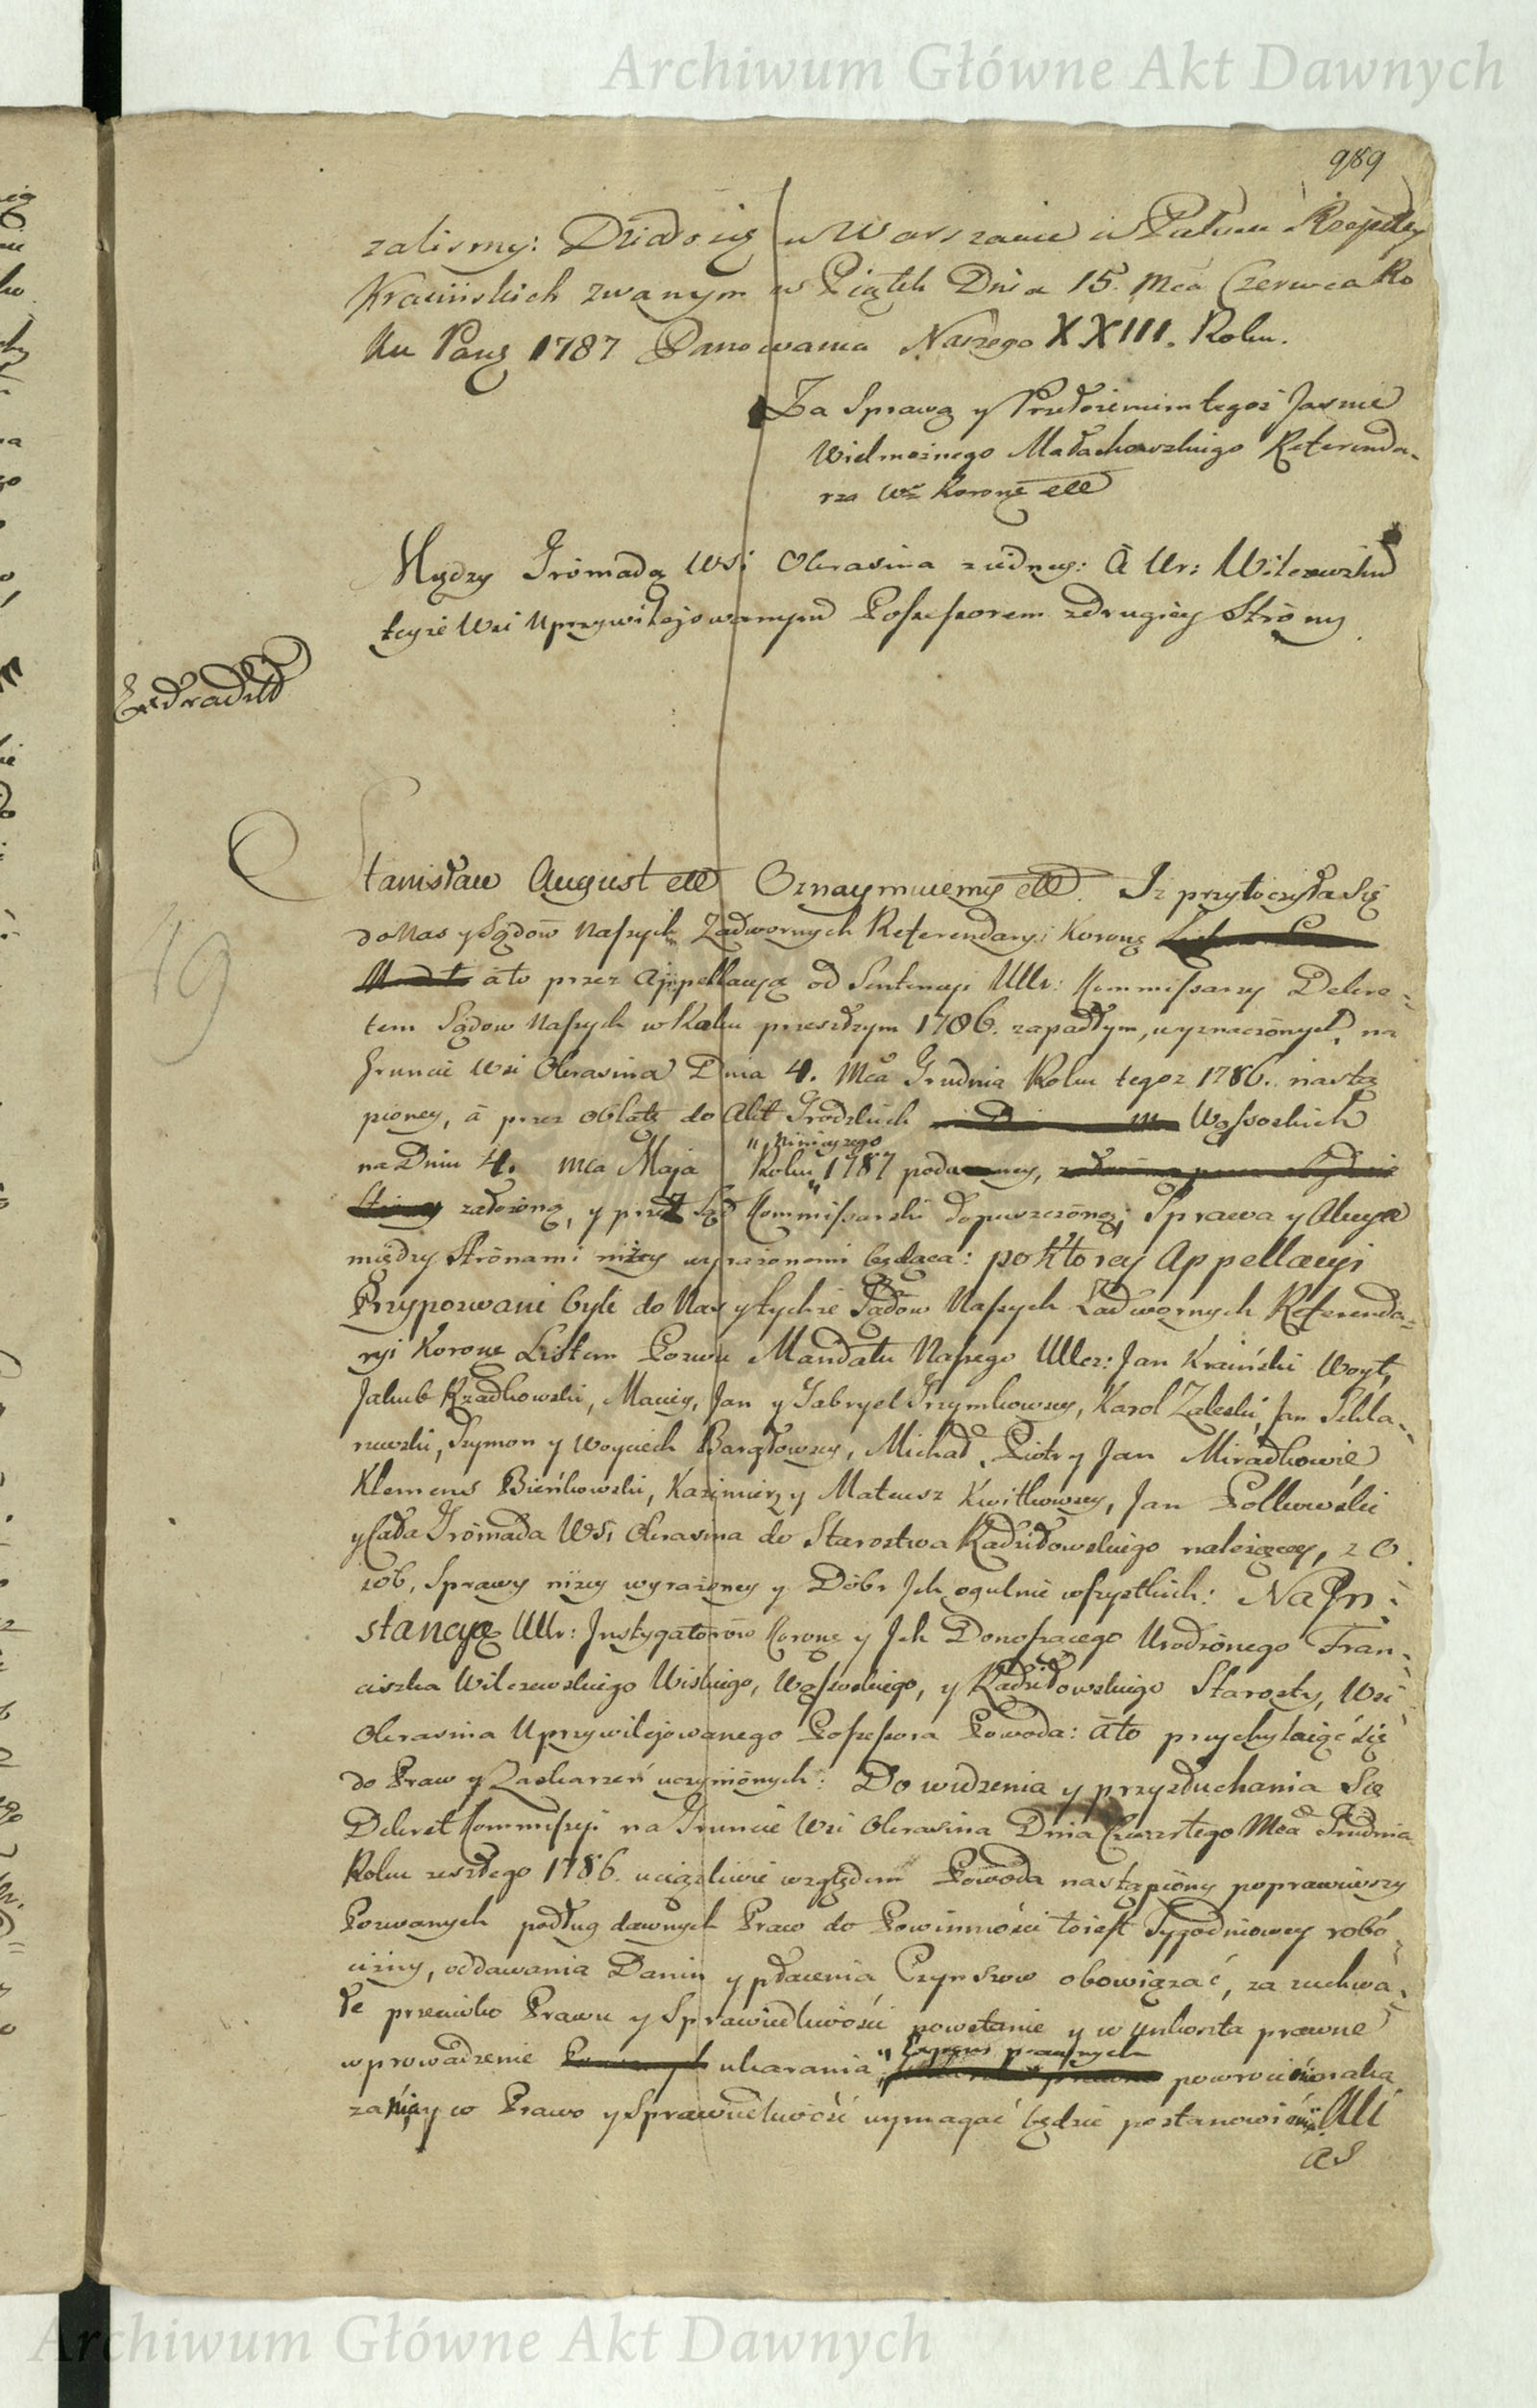 Archiwum Główne Akt Dawnych
989
zalismy: Działo się w Warszawie w Pałacu Rzepltey
Krasińskich zwanym w Piątek Dnia 15. Mca Czerwca Ro
ku Pang 1787 Panowania Naszego XXIII. Roku.
Za Sprawą y Przełożeniem tegoż Jasnie
Wielmożnego Małachowskiego Referenda-
rza Wo Koronę etc
Między Gromadą Wsi Okrasina z iedney: A Ur: Wilczewskim
teyże Wsi Uprzywilejowanym Possessorem z drugiey Strony
Stanisław August etc Oznaymuiemy etc. Iż przytoczyła Się
do Nas y Sądow Naszych Zadwornych Referendaryi Koroney
a to przez Appellacyą od Sentencyi UUr: Kommissarzy Dekre-
tem Sądow Naszych w Roku przeszłym 1786. zapadłym, wyznaczonych, na
Gruncie Wsi Okrasina Dnia 4. Mca Grudnia Roku tegoż 1786. nastą
pioney, a przez oblatę do Akt Grodzkich Wąsoskich
na Dniu 4. Mca Maja Roku „niniejszego „ 1787 podaney,
założoną, y przez Sąd Kommissarski dopuszczoną; Sprawa y Akcya
między Stronami niżey wyrażonemi będąca: po ktorey Appellacyi
Przypozwani byli do Nas y tychże Sądow Naszych Zadwornych Referenda-
ryi Korong Listem Pozwu Mandatu Naszego UUcz: Jan Kraiński Woyt,
Jakub Rządkowski, Maciey, Jan y Gabryel Grzymkowscy, Karol Zaleski, Jan
Szymon y Woyciech Bargłowscy, Michał, Piotr y Jan Miradkowie
Klemens Bieńkowski, Kazimierz y Mateusz Kwitkowscy, Jan Polkowski
y Cała Gromada Wsi Okrasina do Starostwa Radziłowskiego należącey, z O
sob, Sprawy niżey wyrażoney y Dobr Jch ogulnie wszystkich: Na Jn-
stancyą UUr: Jnstygatorow Korong y Jch Donoszącego Urodzonego Fran-
ciszka Wilczewskiego Wiskiego, Wąsoskiego, y Radziłowskiego Starosty, Wsi
Okrasina Uprzywilejowanego Possessora Powoda: a to przychylaiąc się
do Praw y Zaskarzeń uczynionych: Do widzenia y przysłuchania Się
Dekret Kommissyi na Gruncie Wsi Okrasina Dnia Czwartego Mca Grudnia
Roku zeszłego 1786. uciążliwie względem Powoda nastąpiony poprawiwszy
Pozwanych podług dawnych Praw do Powinności toiest Tygodniowey robo-
cizny, oddawania Danin y płacenia Czynszow obowiązać, za zuchwa-
łe przeciwko Prawu y Sprawiedliwości powstanie y w Unkoszta prawne
wprowadzenie ukarania, „Expens prawnych powrocenia
y co Prawo y Sprawiedliwość wymagać będzie postanowienia.
as
Archiwum Główne Akt Dawnych